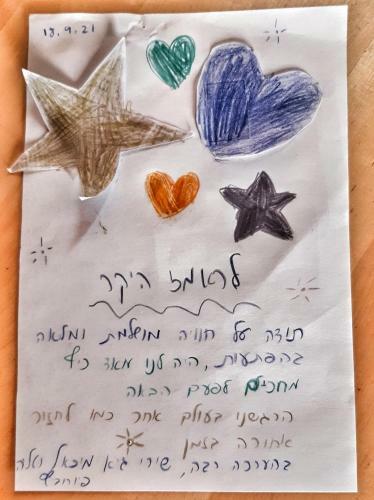 18.9.21
לראמז היקר
תודה על חוויה מושלמת ומלאה
בהפתעות, היה לנו מאוד כיף
מחכים לפעם הבאה
הרגשנו בעולם אחר כמו לחזור
אחורה בזמן
בהערכה רבה, שירי גיא מיכאל